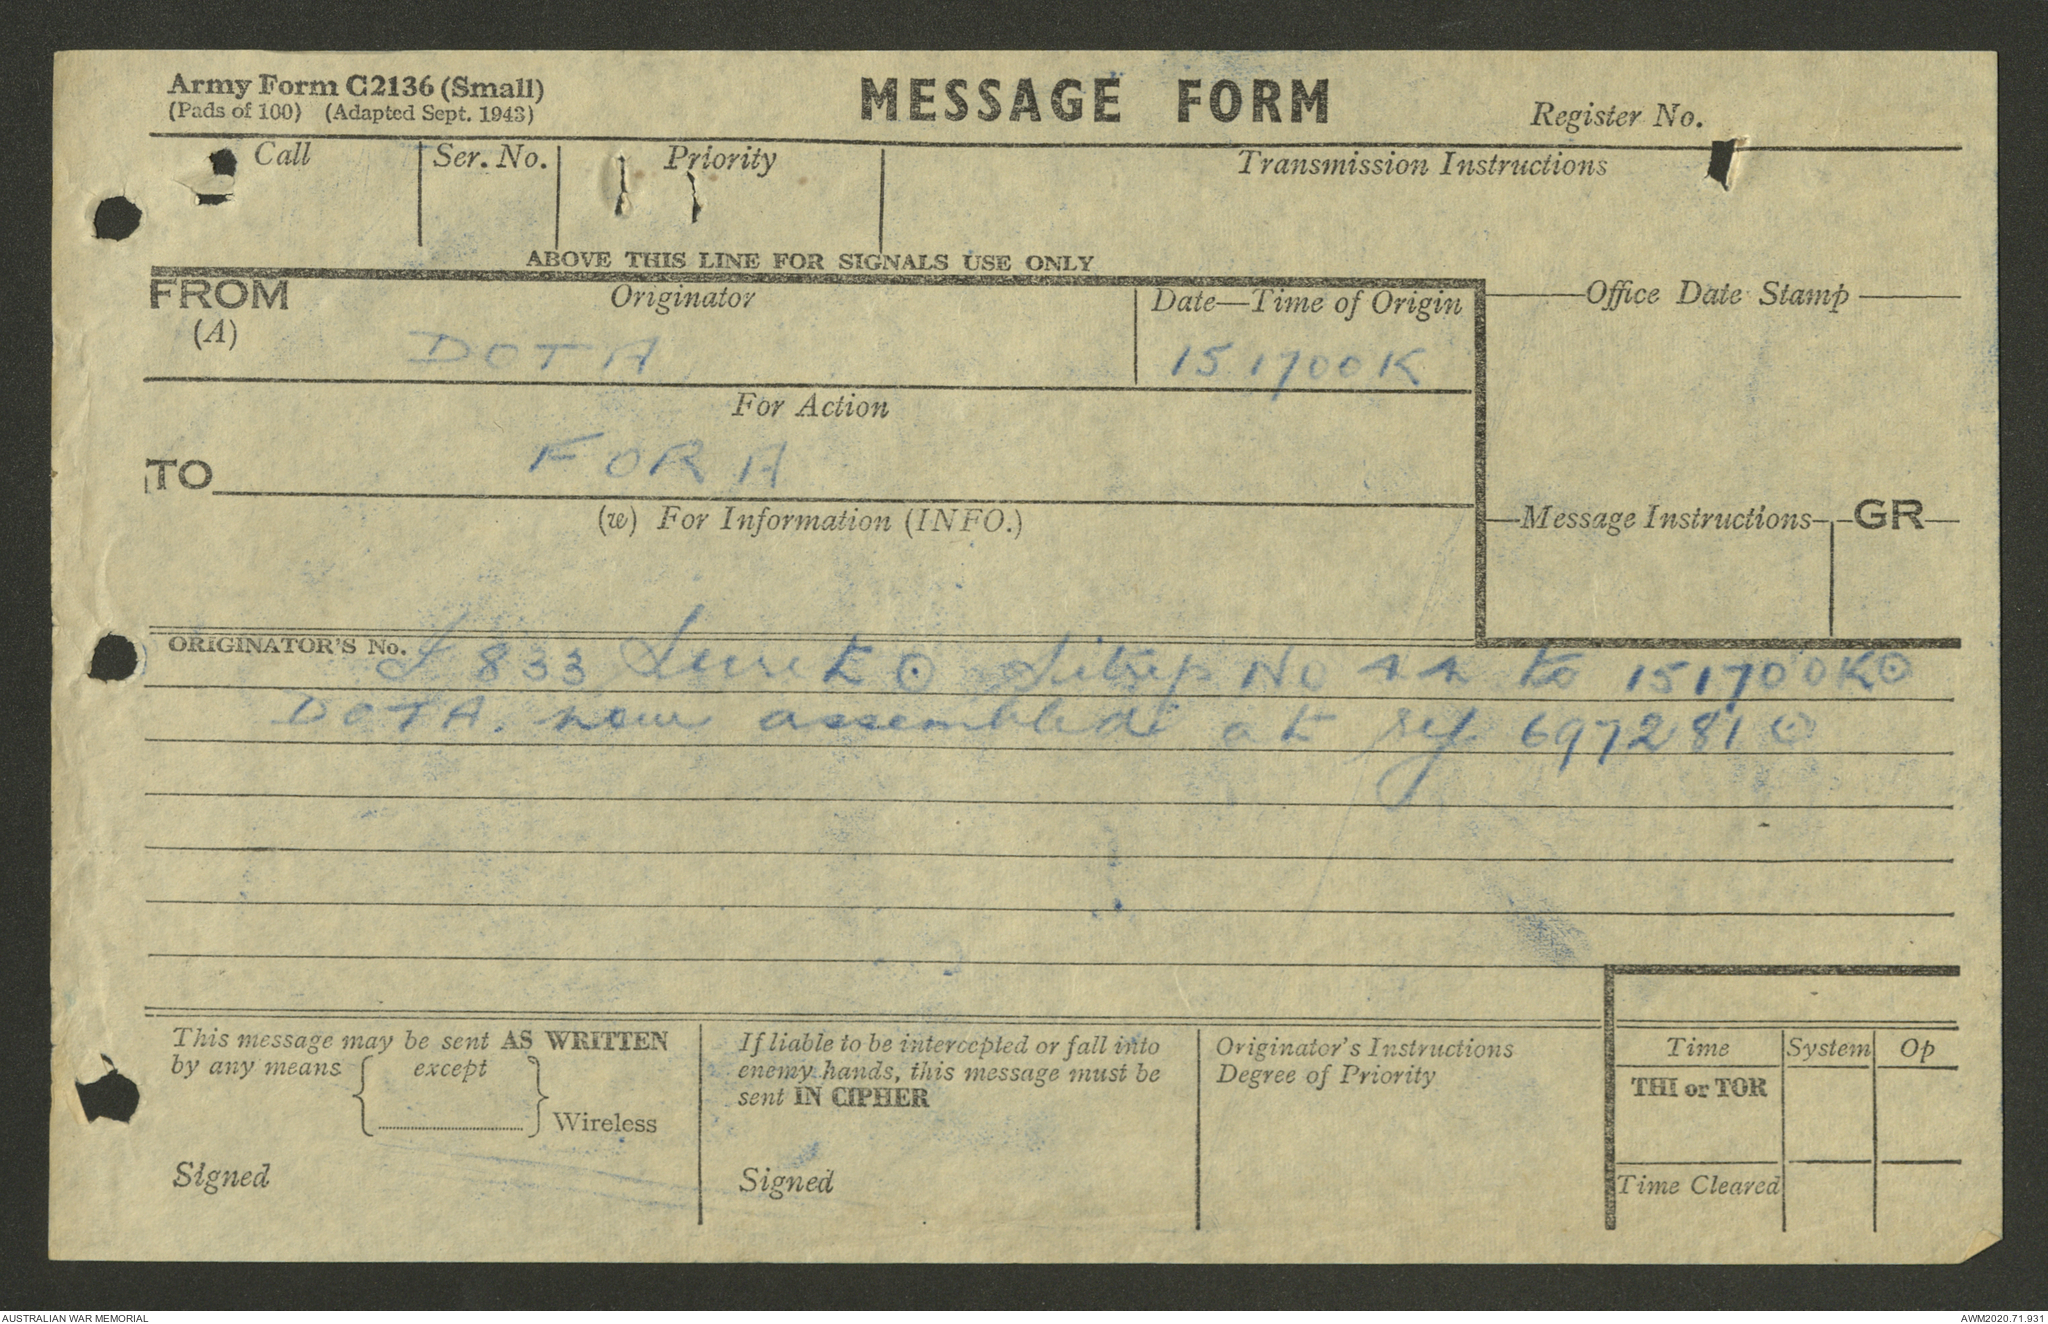 Army Form C2136 (Small)
(Pads of 100) (Adapted Sept. 1943)
MESSAGE FORM
Register No.
Call
Ser. No.
Priority
Transmission Instructions
ABOVE THIS LINE FOR SIGNALS USE ONLY
FROM
(A)
Originator
Date—Time of Origin
Office Date Stamp
DOTA
151700K
For Action
TO
FORA
(w) For Information (INFO.)
Message Instructions
GR
ORIGINATOR'S No.
833 ⊙ Sitrep No 44 to 151700K⊙
DOTA. now assembled at ref 697281⊙
This message may be sent AS WRITTEN
by any means
except
Wireless
Signed
If liable to be intercepted or fall into
enemy hands, this message must be
sent IN CIPHER
Signed
Originator's Instructions
Degree of Priority
Time
System
Op
THI or TOR
Time Cleared
AUSTRALIAN WAR MEMORIAL
AWM2020.71.931